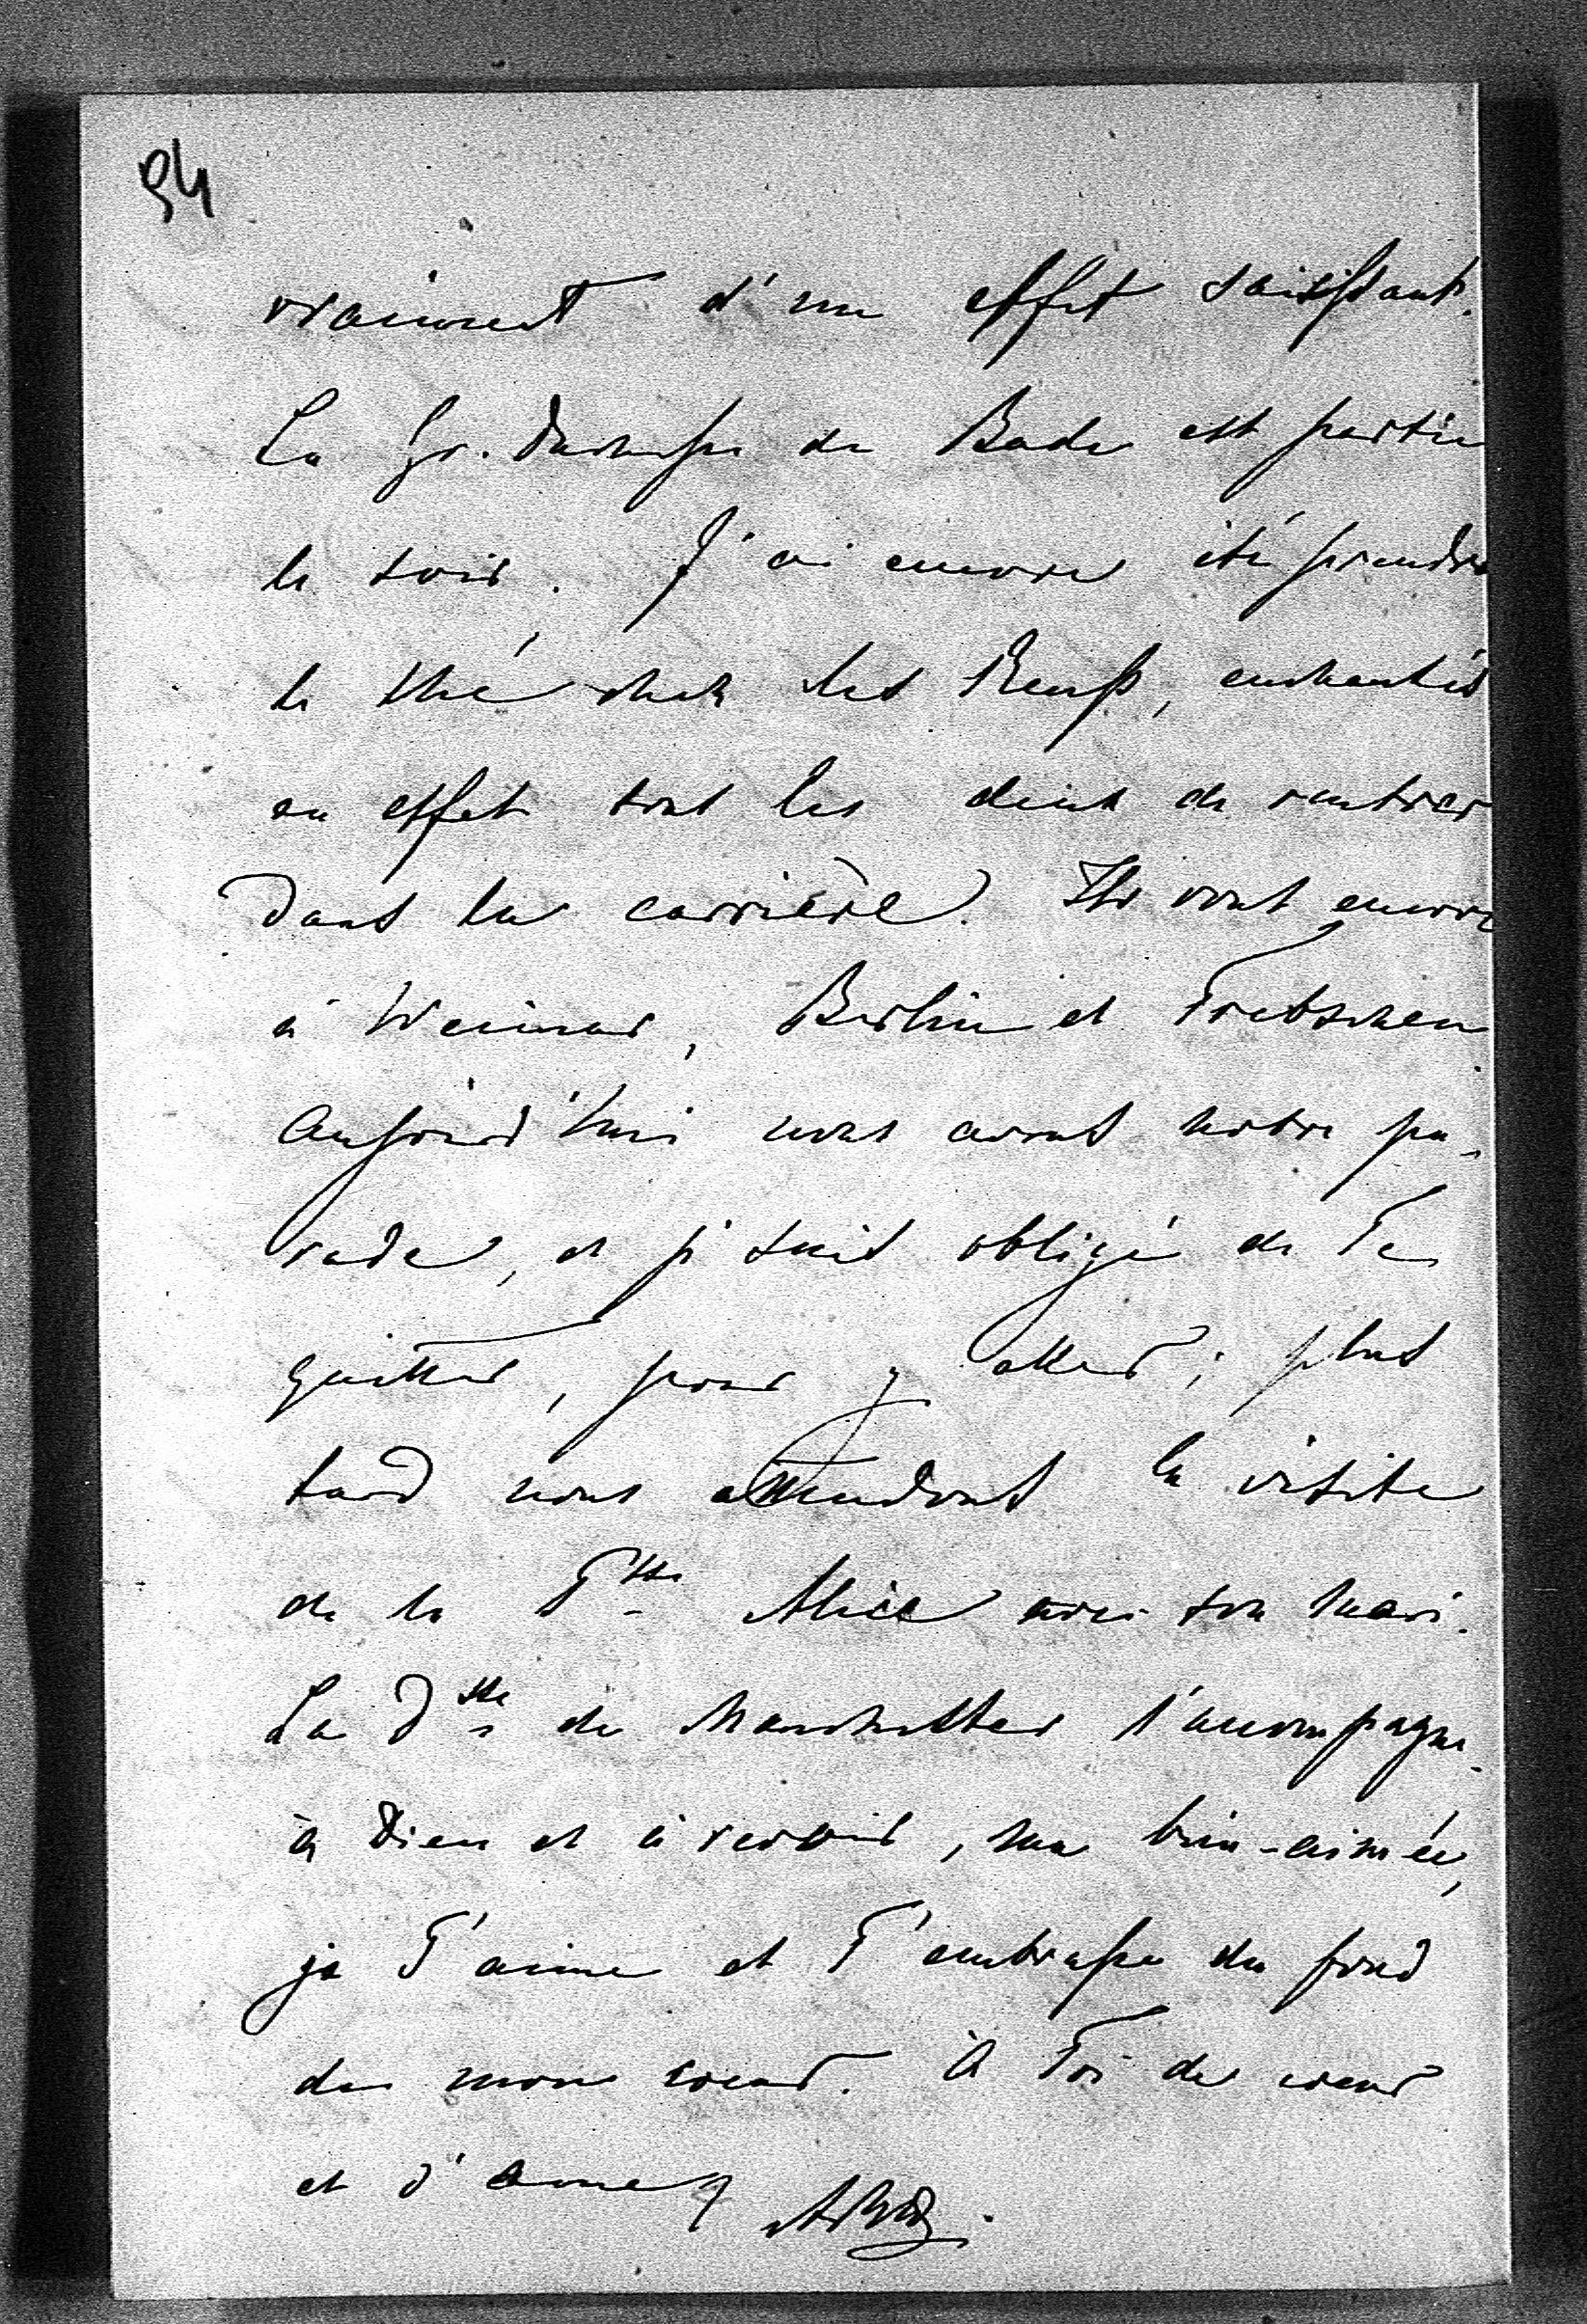 94
vraiment d'un effet saisissant.
La Gr. Duchesse de Bade est partie
le soir. J'ai encore été prendre
le thé chez les Reuss, enchantés
en effet tous les deux de rentrer
dans la carrière. Ils vont encore
à Weimar, Berlin et Trebschen.
Aujourd'hui nous avons notre pa-
rade, et j' suis obligé de Te
quitter, pour y aller; plus
tard nous attendons la visite
de la Psse Alice avec son mari.
La Dsse de Manchester l'accompagne.
à Dieu et à revoir, ma bien-aimée,
je T'aime et T'embrasse du fond
de mon coeur. À Toi de coeur
et d'âme